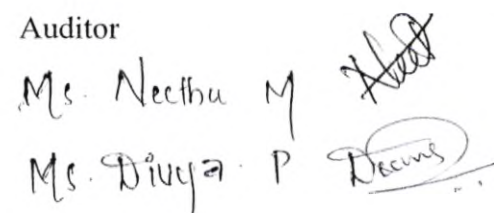 Auditor
Ms. Neethu M
Ms. Divya P